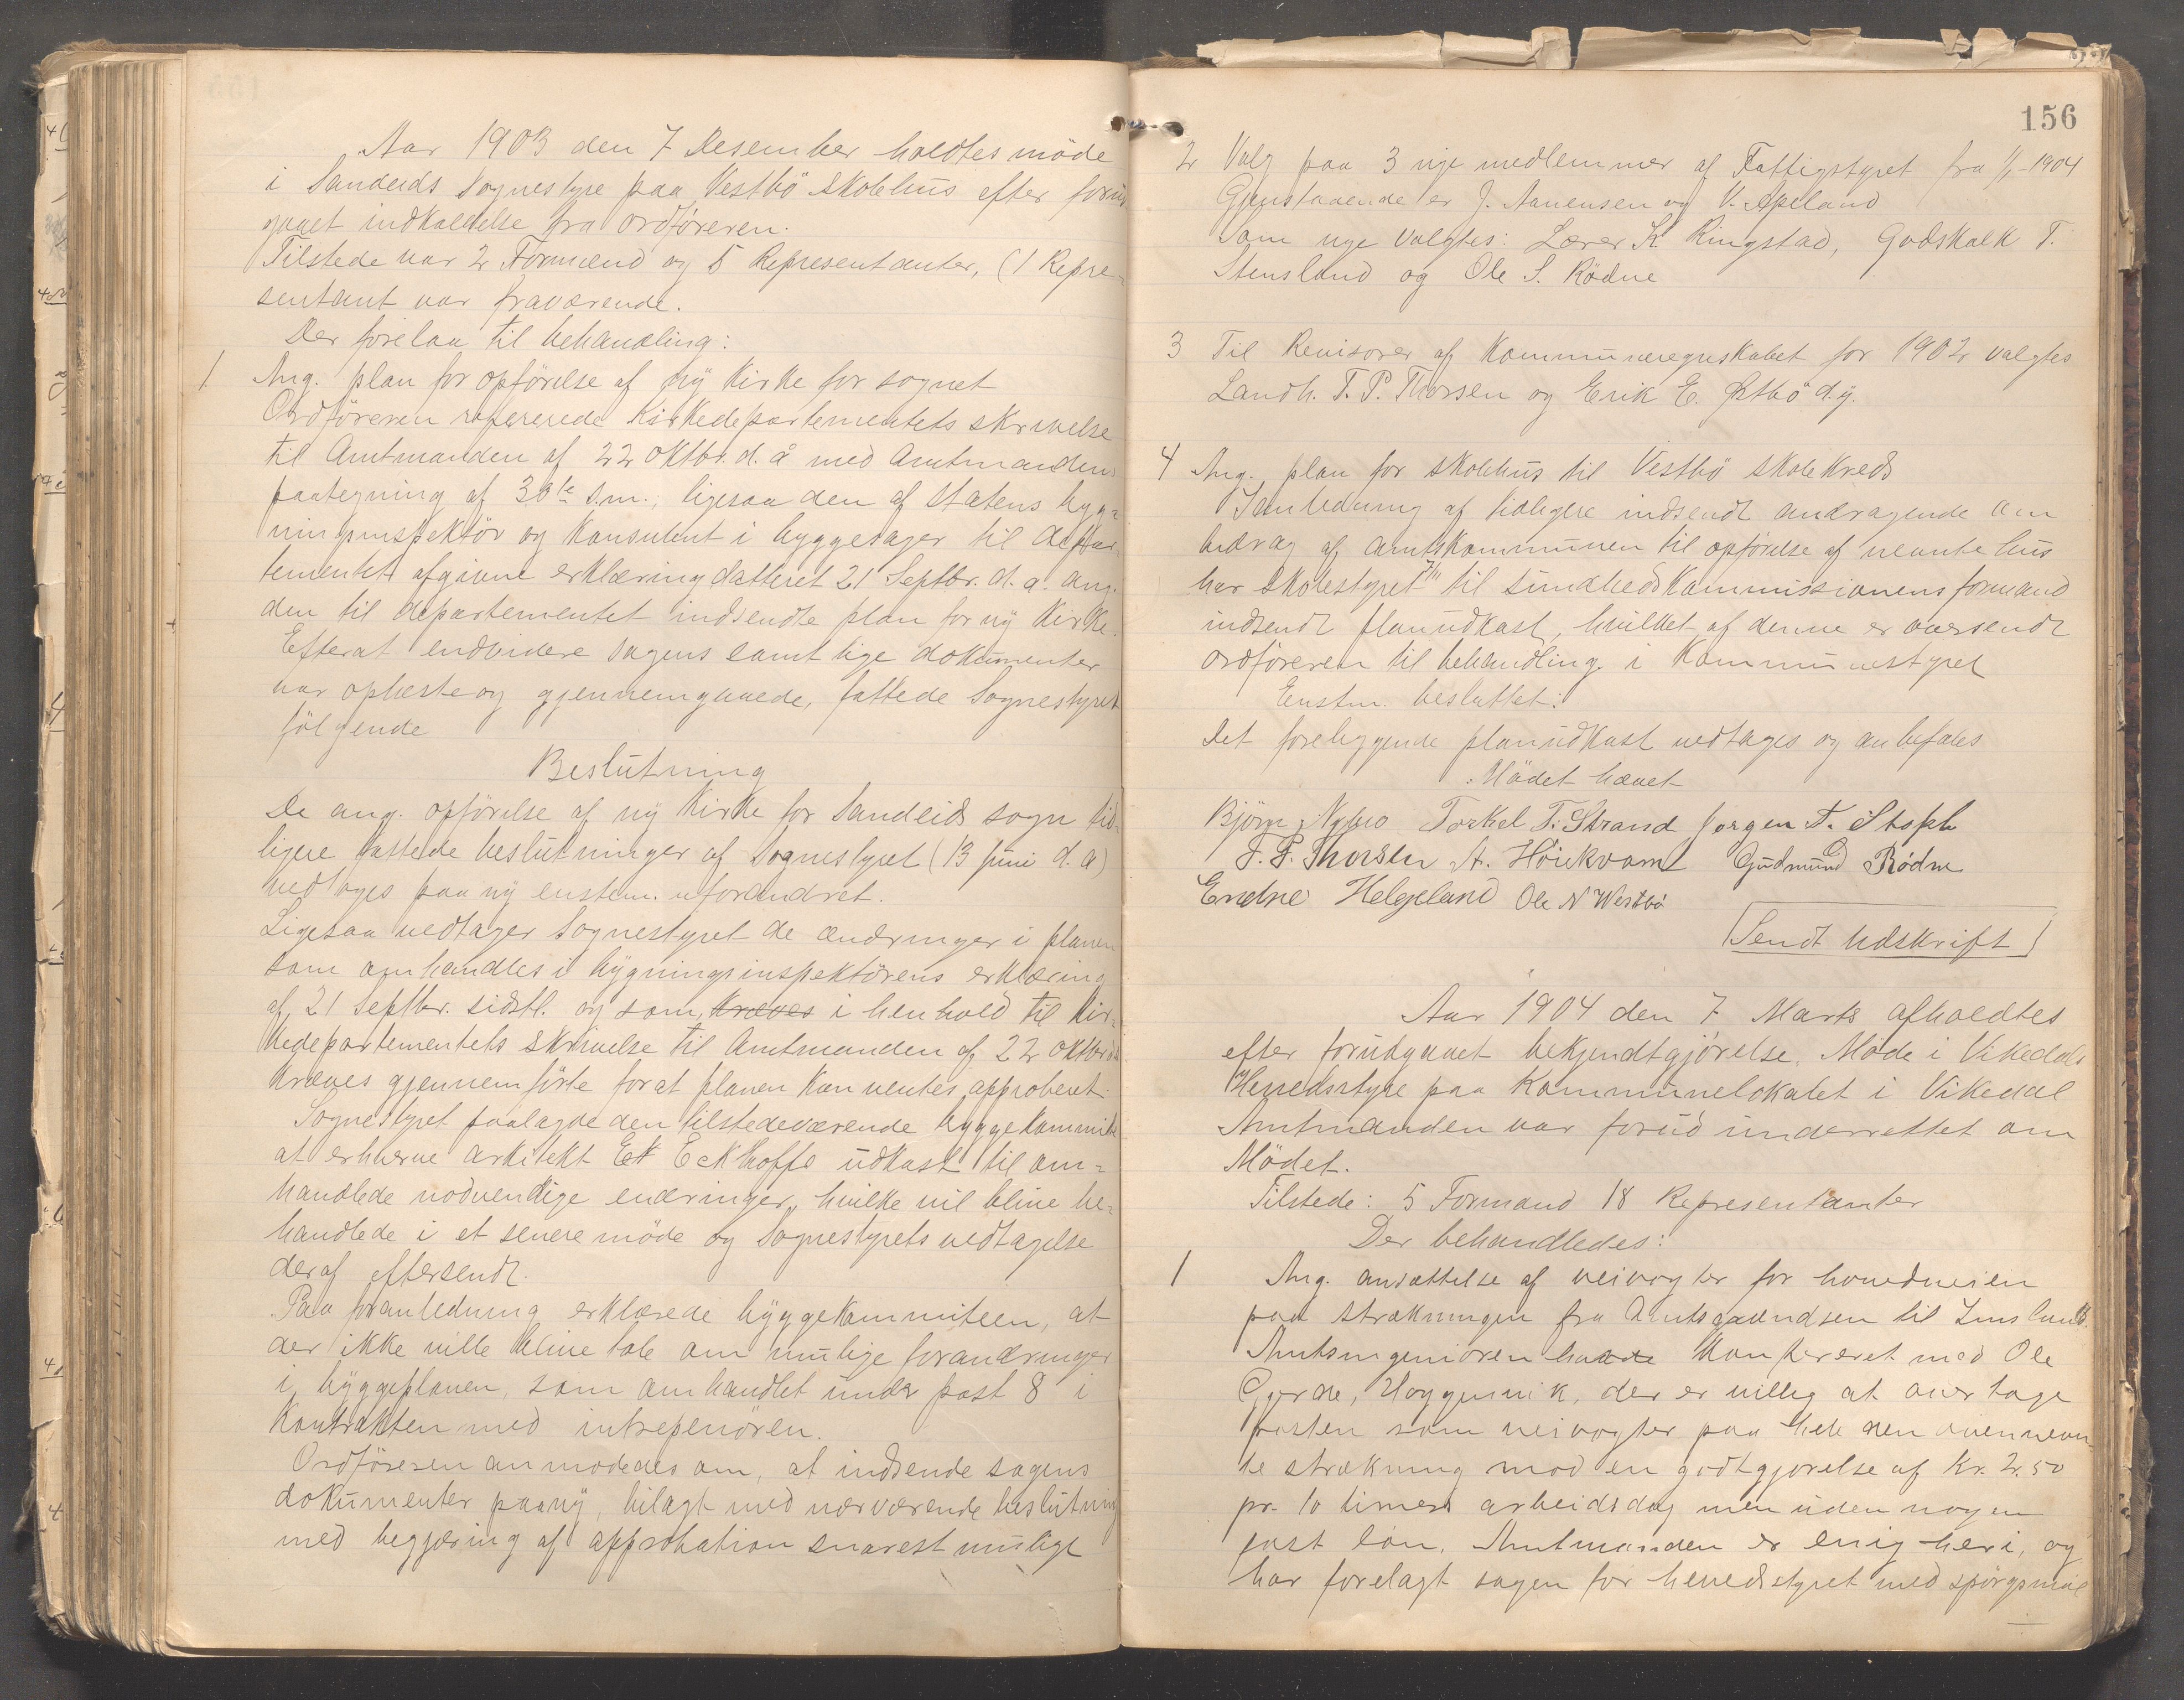 Aar 1903 den 7 Desember holdtes möde
i Sandeids Sognestyre paa Vestbö skolehus efter forud
gaaet indkaldelse fra ordföreren.
Tilstede var 2 Formænd og 5 Representanter, (1 Repre-
sentant var fraværende.
Der forelaa til behandling:
1 Ang. plan for opförelse af ny Kirke for sognet
Ordföreren refererede Kirkedepartementets skrivelse
til Amtmanden af 22 oktbr. d. å med Amtmandens
paategning af 30te s.m.; ligesaa den af Statens byg-
ningsinspektör og Konsulent i byggesager til depar-
tementet afgivne erklæring datteret 21 Septbr. d. a. ang.
den til departementet indsendte plan for ny Kirke.
Efterat endvidere sagens samtlige dokumenter
var opleste og gjennemgaaede, fattede Sognestyret
følgende
Beslutning
De ang. opförelse af ny Kirke for Sandeids sogn tid-
ligere fattede beslutninger af Sognestyret (13 Juni d. a)
vedtages paa ny enstem. uforandret.
Ligesaa vedtager Sognestyret de ændringer i planen
som omhandles i bygningsinspektörens erklæring
af 21 Septbr. sidstl. og som kræves i henhold til Kir-
kedepartementets skrivelse til Amtmanden af 22 oktbr
kræves gjennemförte forat planen kan ventes approberet.
Sognestyret paalagde den tilstedeværende byggekommite
at erhverve arkitekt Ek Eckhoffs udkast til om-
handlede nodvendige endringer, hvilke vil blive be-
handlede i et senere möde og Sognestyrets vedtagelse
deraf eftersendt.
Paa foranledning erklærede byggekommiteen, at
der ikke ville blive tale om mulige forandringer
i byggeplanen, som omhandlet under post 8 i
Kontrakten med intrepenören.
Ordföreren anmodedes om, at indsende sagens
dokumenter paany, bilagt med nærværende beslutning
med begjæring af approbation snarest muligt
156
2 Valg paa 3 nye medlemmer af Fattigstyret fra 1/1-1904
Gjenstaaende er J. Aanensen og V. Apeland
Som nye valgtes: Lærer K. Ringstad, Godskalk T.
Stensland og Ole S. Rödne
3 Til Revisorer af Kommuneregnskabet for 1902 valgtes
Landh. T. P. Thorsen og Erik E. Østbö d.y.
4 Ang. plan for skolehus til Vestbö skolekreds
I anledning af tidligere indsendt andragende om
bidrag af amtskommunen til opförelse af nevnte hus
har skolestyret til sundhedskommissionens formand
indsendt planudkast, hvilket af denne er oversendt
ordföreren til behandling i Kommunestyret
Enstm. besluttet:
Det foreliggende planudkast vedtages og anbefales
Mödet hævet
Björn Nybro Torkel T. Strand Jorgen T. Stople
T. P. Thorsen A. Høiekvam Gudmund Rödne
Endre Helgeland Ole N Westbö
Sendt Udskrift
Aar 1904 den 7 Marts afholdtes
efter forudgaaet bekjendtgjörelse, Möde i Vikedals
Herredsstyre paa Kommunelokalet i Vikedal
Amtmanden var forud underrettet om
Mödet.
Tilstede: 5 Formænd 18 Representanter
Der behandledes:
1 Ang. ansættelse af veivogter for hovedveien
paa strækningen fra Amtsgrændsen til Imsland.
Amtsingeniören havde Konfereret med Ole
Gjerde, der er villig at overtage
posten som veivogter paa hele den ovennevn
te strækning mod en godtgjorelse af Kr. 2.50
pr. 10 timers arbeidsdag men uden nogen
fast lön. Amtmanden er enig heri, og
har forelagt sagen for herredsstyret med spörgsmaal